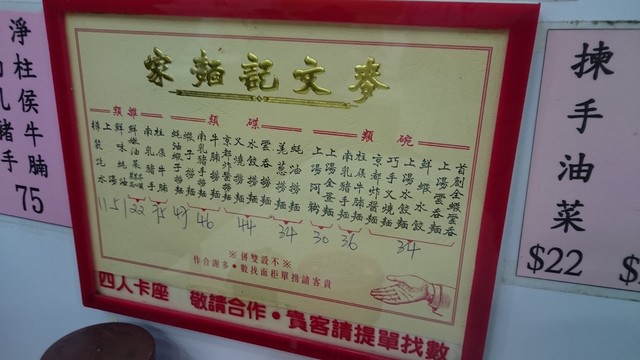 麥文記麵家
碗類
首創全蝦雲吞
上湯雲吞麵
鮮蝦水餃麵
上湯水餃麵
巧手叉燒麵
京都炸醬麵
南乳豬手麵
柱侯牛腩麵
上湯金菜麵
上湯河粉
34
36
30
碟類
蠔油撈麵
薑蔥撈麵
雲吞撈麵
水餃撈麵
叉燒撈麵
京都炸醬撈麵
牛腩撈麵
南乳豬手撈麵
蝦子撈麵
蠔油蝦子撈麵
34
44
46
49
雜類
柱侯牛腩
南乳豬手
鮮蠔油菜
鮮味
上湯
樽裝汽水
22
11
※不設雙拼※
貴客請携單櫃面找數•多謝合作
四人卡座 敬請合作•貴客請提單找數
淨柱侯牛腩
乳豬手
75
揀手油菜
$22